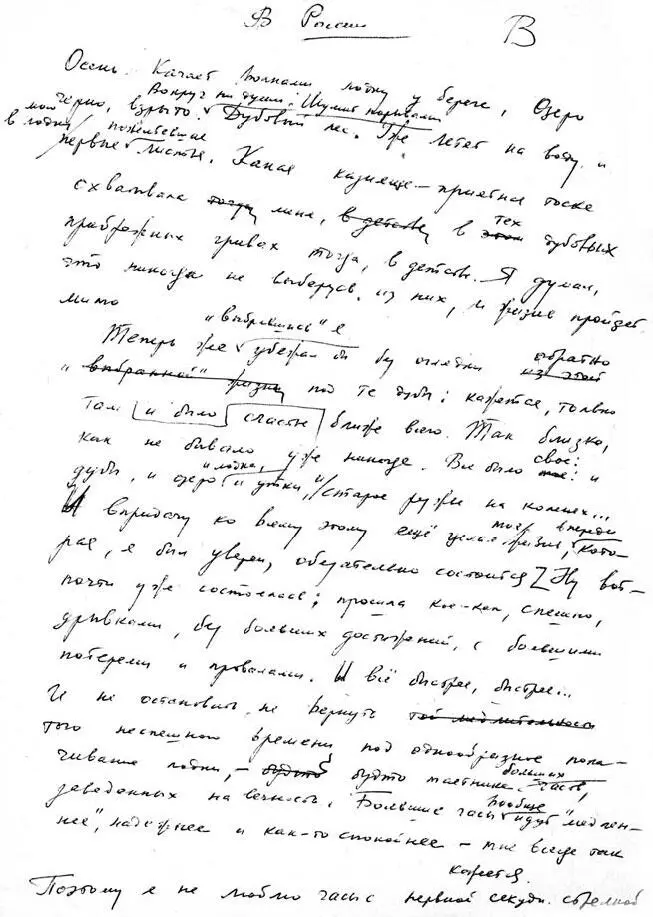 В России
В
Осень. Качает волнами лодку у берега, Озеро
Вокруг ни души. Шумит порывами
чёрно, взрыто. Дубовый лес. Уже летят на воду и
мою
в лодку пожелтевшие
первые листья. Какая казнящая-приятная тоска
схватывала тогда меня, в детстве, в тех этой дубовых
прибрежных гривах тогда, в детстве. Я думал,
что никогда не выберусь из них, и жизнь пройдет
мимо
"выбравшись" я
Теперь же убежал бы без оглядки обратно
из этой
"выбранной" жизни под те дубы: кажется, только
там и было счастье ближе всего. Так близко,
как не бывало уже никогда. Все было свое: и
дубы, и озеро "и лодка, и утки," старое ружье на коленях...
И впридачу ко всему этому ещё целая моя жизнь впереди, кото-
рая, я был уверен, обязательно состоится. Ну вот-
почти уже состоялась; прошла кое-как, спешно,
рывками, без больших достижений, с большими
потерями и провалами. И всё быстрее, быстрее...
И не остановить, не вернуть той медлительности
того неспешного времени под однообразное пока-
чивание лодки, - будто будто маятника больших часов,
заведенных на вечность. Большие часы вообще идут "медлен-
нее", надежнее и как-то спокойнее - мне всегда так
кажется.
Поэтому я не люблю часы с нервной секундн. стрелкой